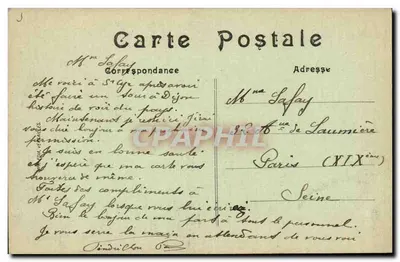 Carte Postale
Correspondance
Adresse
Mme Lafay
Me voici à St Cyr après avoir
été faire un tour à Dijon
histoire de voir du pays.
Maintenant je
vous dire bonjour à
permission.
Je suis en bonne santé
et j'espère que ma carte vous
trouvera de même.
Faites des compliments à
Mr Lafay lorsque vous lui écrirez
Bien le bonjour de ma part à tout le personnel.
Je vous serre la main en attendant de vous voir
CPAPHIL
Mme Lafay
32 Ave de Laumière
Paris (XIXème)
Seine